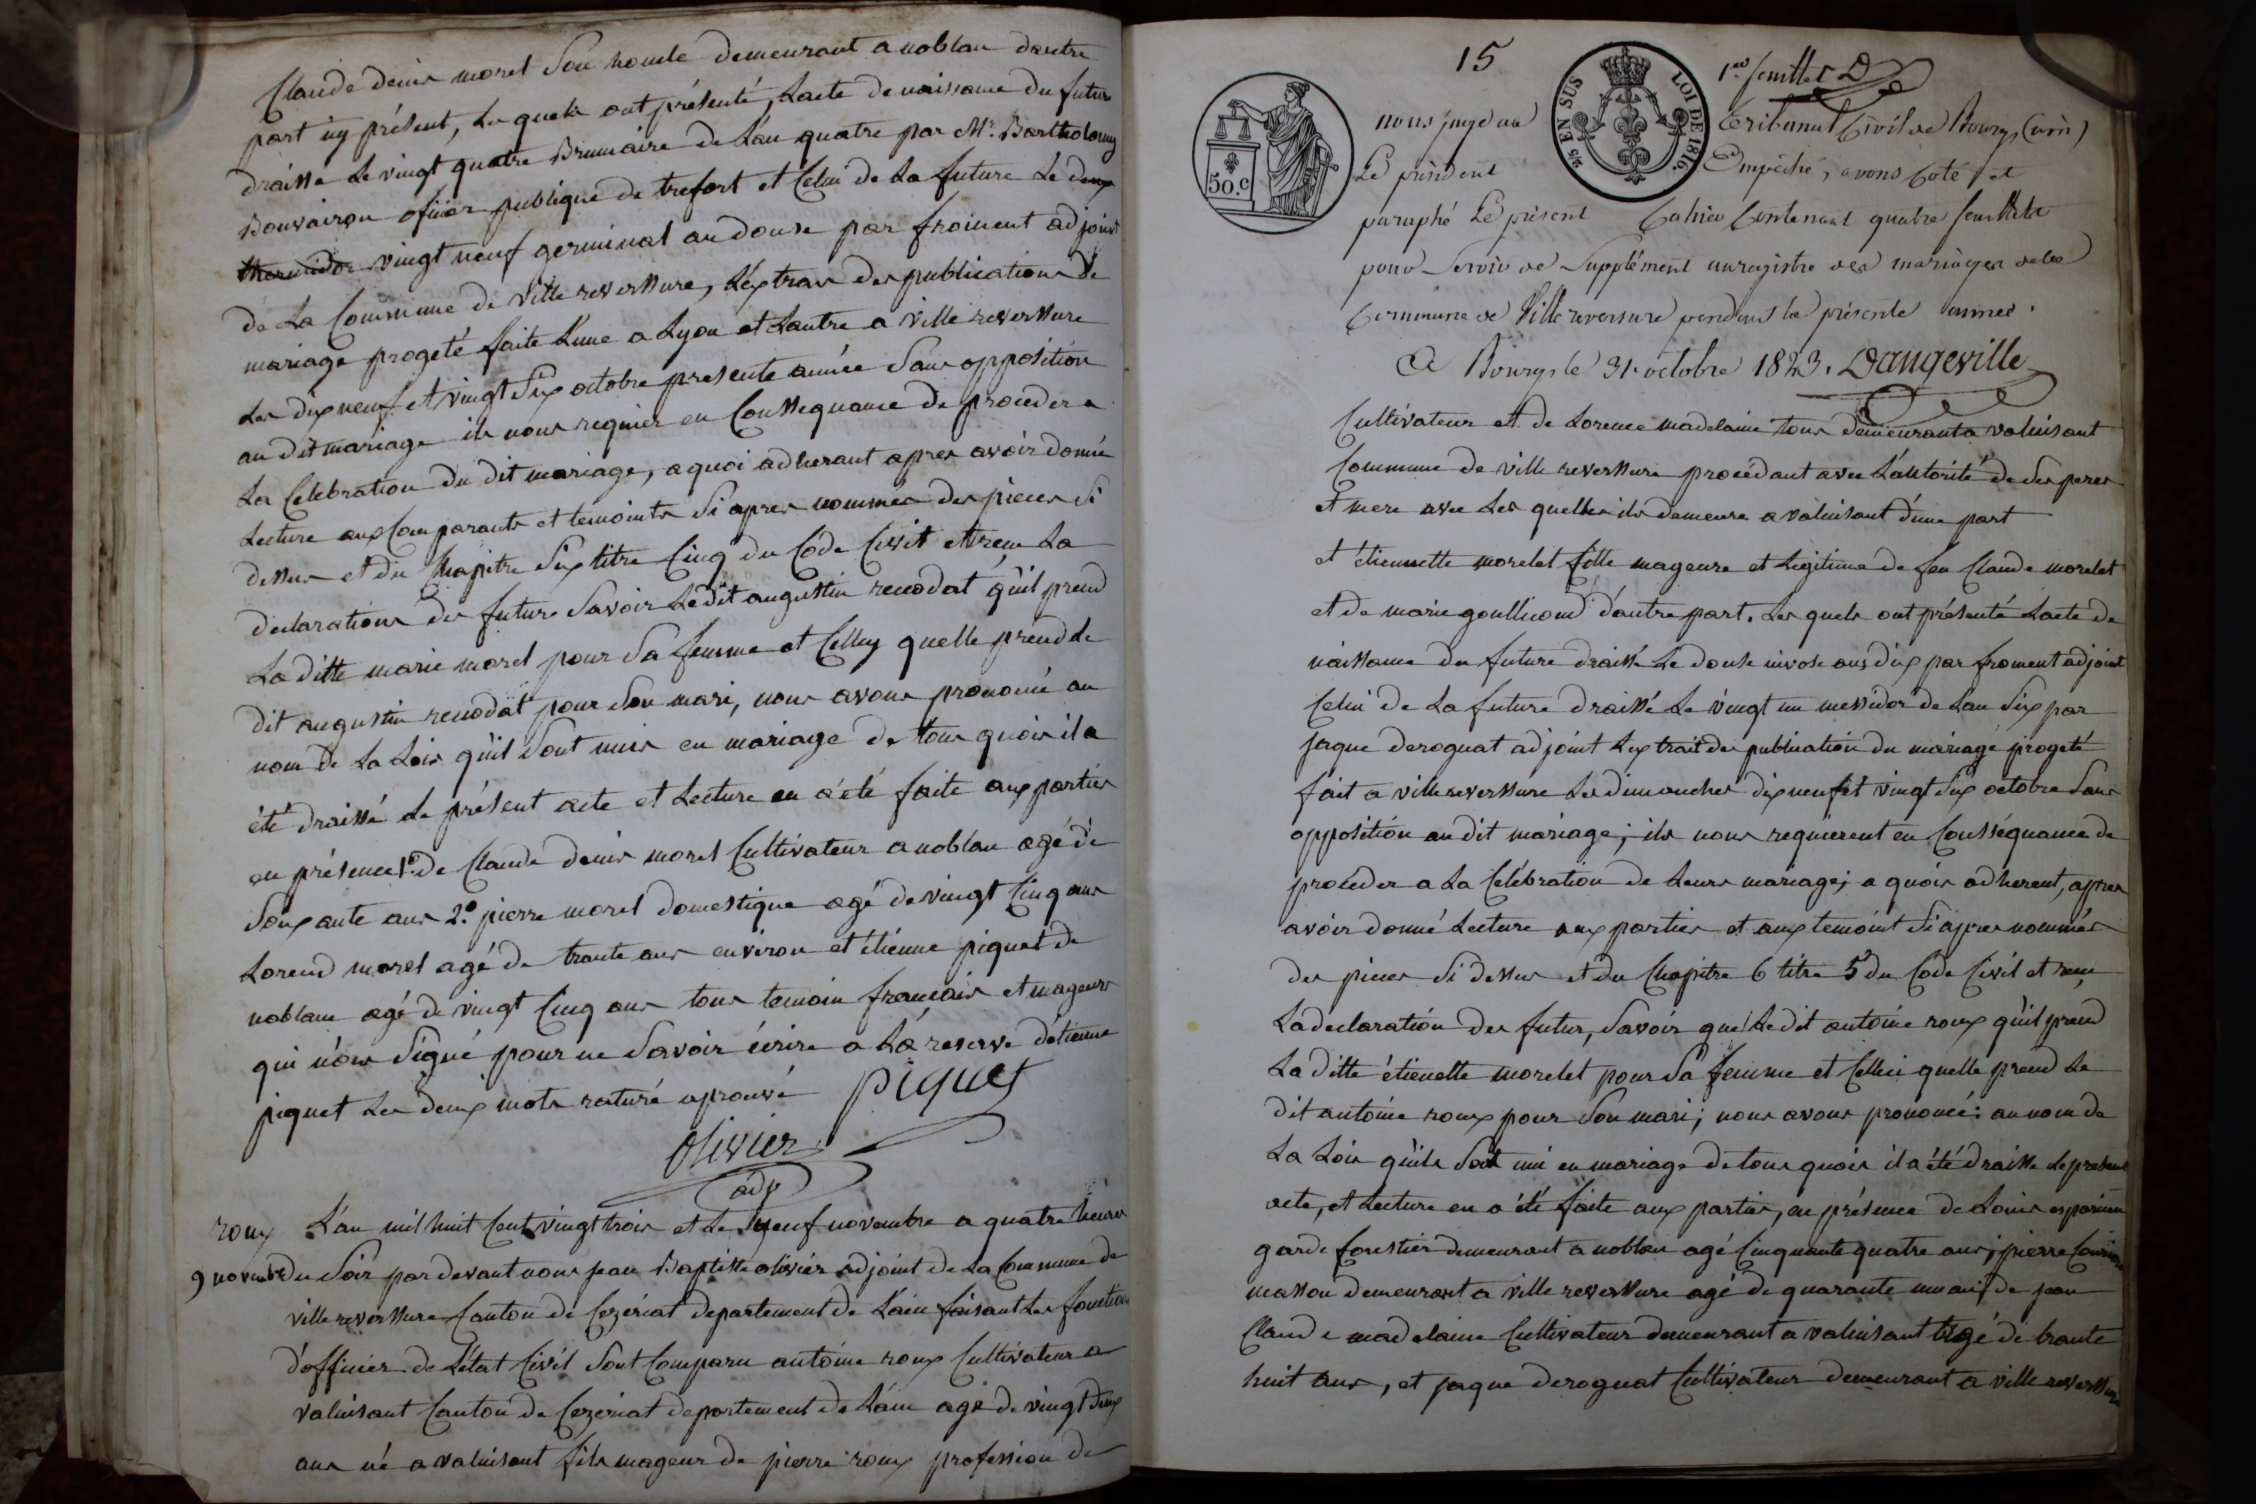 Claude denis morel son noncle demeurant a noblan dautre
part ÿ présent, les quels ont présenté, Lacte de naissance du futur
draissé le vingt quatre Brumaire de Lan quatre par Mr. Bartholomy
Bouvairon oficier publique de trefort et Celui de La future Le deux
thermidor vingt neuf germinal an douse par froiment adjoint
de La Commune de ville reverssure, Lextrais des publications de
mariage progeté faite Lune a Lyon et Lautre a ville reverssure
Les dix neuf et vingt six octobre presente année sans opposition
au dit mariage ils nous requier en Conssequance de proceder a
La Celebration du dit mariage, a quoi adherant apres avoir donné
Lecture aux Comparants et temoints si apres nommés des pieces si
dessus et du Chapitre six titre Cinq du Code Civil et reçu La
declarations des futurs savoir Ledit augustin renodat quil prend
La ditte marie morel pour sa femme et Celley quelle prend Le
dit augustin renodat pour son mari, nous avons pronomcé au
nom de La Lois quil sont unis en mariage de tous quois il a
été draissé Le présent acte et Lecture en a été faite aux parties
en présence 1° de Claude denis morel Cultivateur a noblan agé de
soixante ans 2.° pierre morel domestique agé de vingt Cinq ans
Lorend morel agé de trante ans environ et étienne piquet de
noblane agé de vingt Cinq ans tous temoin francais et mageurs
qui n'ons signé pour ne savoir écrire a La reserve détienne
piquet Les deux mots raturé aprouvé piquet
olivier
adj
roux L'an mil huit Cent vingt trois et Le neuf novembre a quatre heures
9 novembre du soir par devant nous jean Baptiste olivier adjoint de La Commune de
ville reverssure Canton de Cezeriat departement de Lain faisant Les fonction
d'officier de L'état Civil sont Comparu antoine roux Cultivateur a
valuisant Canton de Cezeriat departement de Lain agé de vingt deux
ans né a valuisant fils mageur de pierre roux profession de
15
1re feuillet D
EN SUS LOI DE 1816.
50.c
nous juge au Tribunal Civil de Bourg (ain)
Le président Empêché, avons Coté et
paraphé Le présent Cahier Contenant quatre feuillets
pour servir de supplément au registre des mariages de la
Commune de Villereverssure pendant la présente année.
A Bourg, le 31 octobre 1823. Dangeville
Cultivateur et de Lorence madelaine tous demeurant a valuisant
Commune de ville reverssure procédant avec L'autorité de ses peres
et mere avec Les quelles ils demeure a valuisant d'une part
et étiennette morelet fille mageure et Legitime de feu Claude morelet
et de marie goullioud d'autre part. Les quels ont présenté Lacte de
naissance du future draissé Le douse nivose ans dix par froment adjoint
Celui de La future draissé Le vingt un messidor de Lan six par
jaque deroguat adjoint Lextrait des publication du mariage progeté
fait a villereverssure Les dimanches dix neuf et vingt six octobre sans
opposition au dit mariage; ils nous requierent en Consséquance de
procéder a La Célébration de Leurs mariage; a quois adherent, apres
avoir donné Lecture aux parties et aux temoint si apres nommés
des pieces si dessus et du Chapitre 6 titre 5 du Code Civil et reçu
La declaration des futur, savoir que Le dit antoine roux quil prend
La ditte étienette morelet pour sa femme et Cellei quelle prend Le
dit antoine roux pour son mari; nous avons pronomcé: au nom de
La Lois quils sont uni en mariage de tous quois il a été draissé Le présent
acte, et Lecture en a été faite aux parties, en présence de Louis
garde forestier demeurant a noblan agé Cinquante quatre ans; pierre
masson demeurant a ville reverssure agé de quarante un ans de jean
Claude madelaine Cultivateur demeurant a valuisant agé de trante
huit ans, et jaque deroguat Cultivateur demeurant a ville reverssure